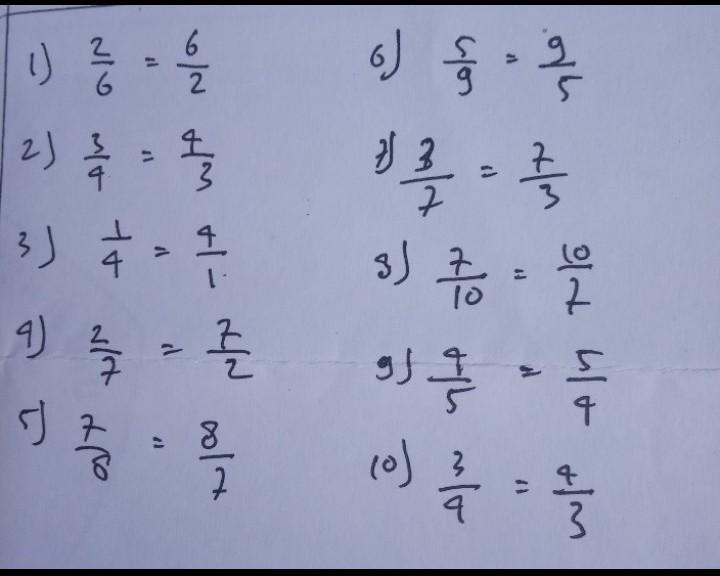 1) 2/6 = 6/2
2) 3/4 = 4/3
3) 1/4 = 4/1
4) 2/7 = 7/2
5) 7/8 = 8/7
6) 5/9 = 9/5
7) 3/7 = 7/3
8) 7/10 = 10/7
9) 4/5 = 5/4
10) 3/4 = 4/3